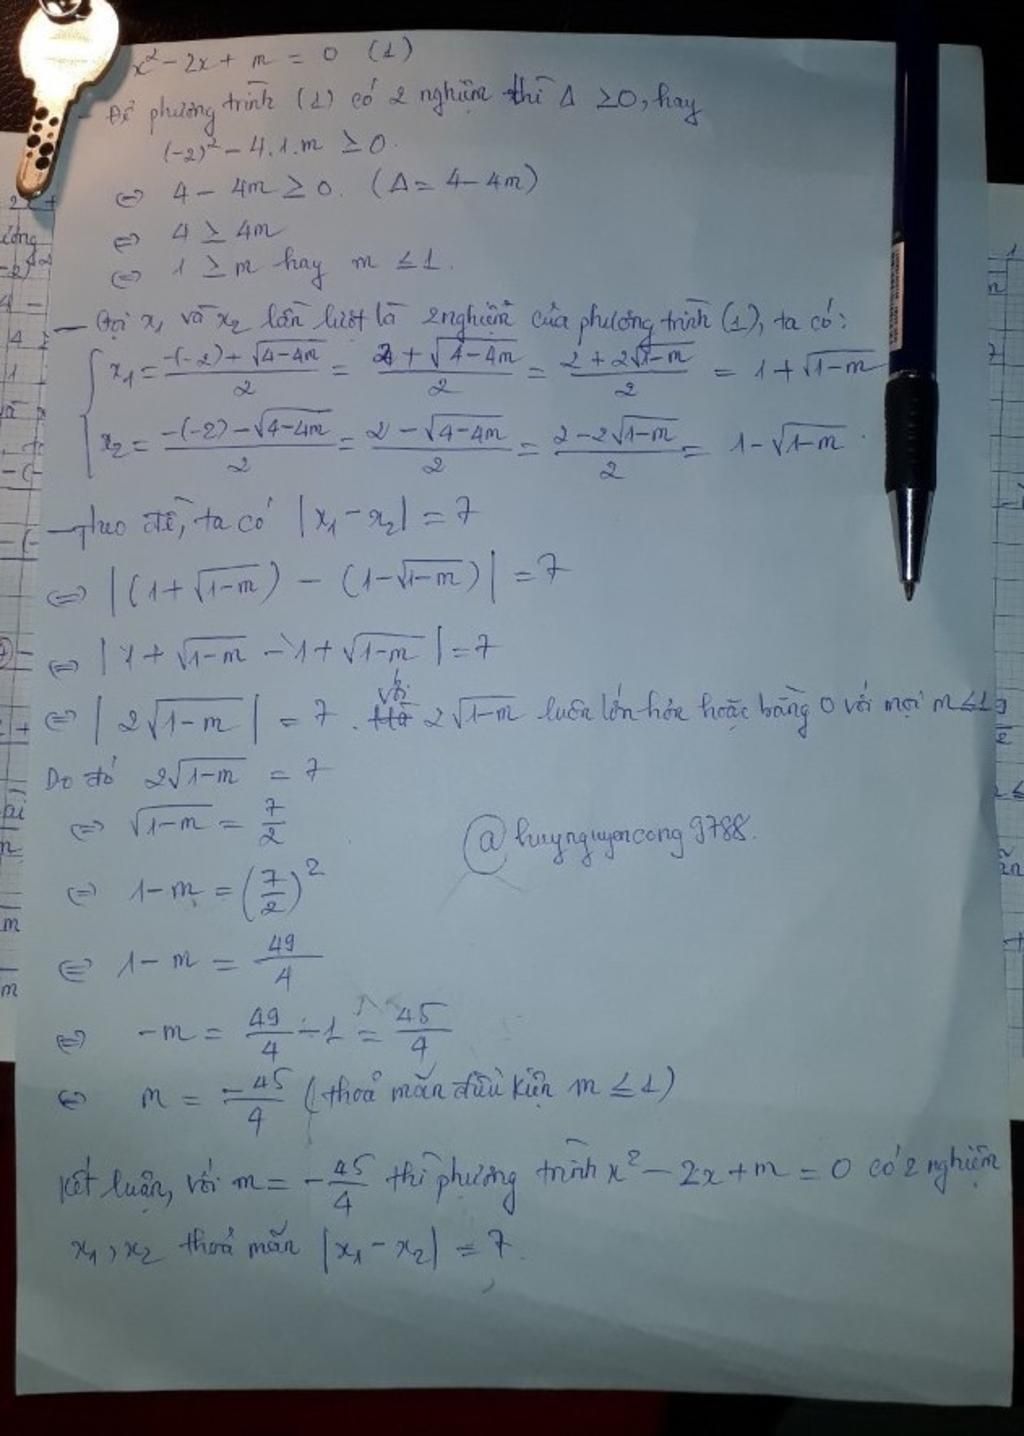 x² - 2x + m = 0 (1)
- Để phương trình (1) có 2 nghiệm thì Δ ≥ 0, hay
(-2)² - 4.1.m ≥ 0.
⇔ 4 - 4m ≥ 0. (Δ = 4 - 4m)
⇔ 4 ≥ 4m
⇔ 1 ≥ m hay m ≤ 1.
- Gọi x₁ và x₂ lần lượt là 2 nghiệm của phương trình (1), ta có:
x₁ = (-(-2) + √(4-4m))/2 = (2 + √(4-4m))/2 = (2 + 2√(1-m))/2 = 1 + √(1-m)
x₂ = (-(-2) - √(4-4m))/2 = (2 - √(4-4m))/2 = (2 - 2√(1-m))/2 = 1 - √(1-m).
- Theo đề, ta có |x₁ - x₂| = 7
⇔ |(1 + √(1-m)) - (1 - √(1-m))| = 7
⇔ |1 + √(1-m) - 1 + √(1-m)| = 7
⇔ |2√(1-m)| = 7. Vì 2√(1-m) luôn lớn hơn hoặc bằng 0 với mọi m ≤ 1
Do đó 2√(1-m) = 7
⇔ √(1-m) = 7/2
@huynguyencong9788.
⇔ 1 - m = (7/2)²
⇔ 1 - m = 49/4
⇔ -m = 49/4 - 1 = 45/4
⇔ m = -45/4 (thoả mãn điều kiện m ≤ 1)
Kết luận, với m = -45/4 thì phương trình x² - 2x + m = 0 có 2 nghiệm
x₁, x₂ thoả mãn |x₁ - x₂| = 7.